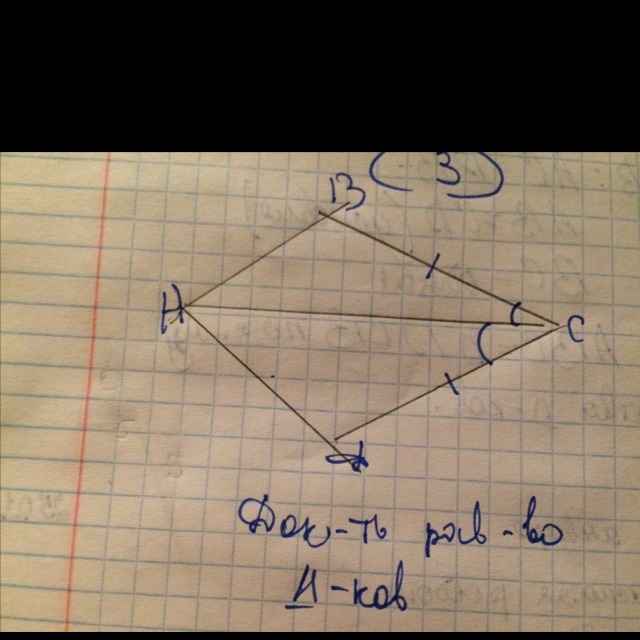 (3)
В
А
С
Д
Док-ть рав-во
Δ-ков